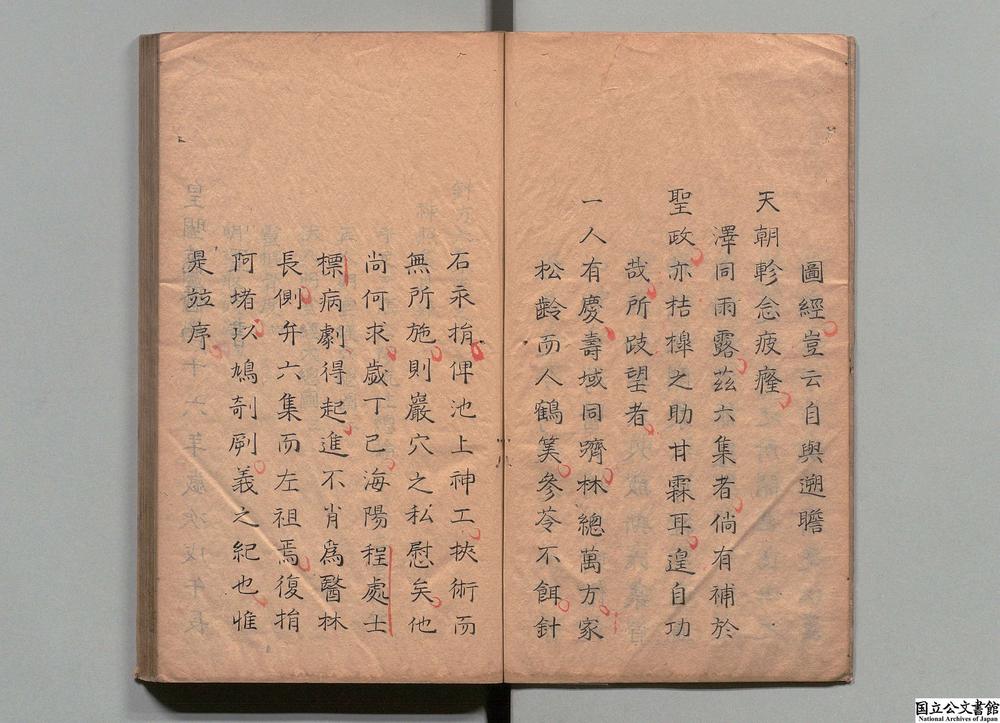 圖經豈云自與遡瞻
天朝軫念疲癃
澤同雨露茲六集者倘有補於
聖政亦桔橰之助甘霖耳遑自功
哉所跂望者
一人有慶壽域同躋林總萬方家
松齡而人鶴筭參苓不餌針
石永捐俾池上神工挾術而
無所施則巖穴之私慰矣他
尚何求歲丁巳海陽程處士
標病劇得起進不肖爲醫林
長側弁六集而左袒焉復捐
阿堵以鳩剞劂義之紀也惟
是竝序
国立公文書館
National Archives of Japan